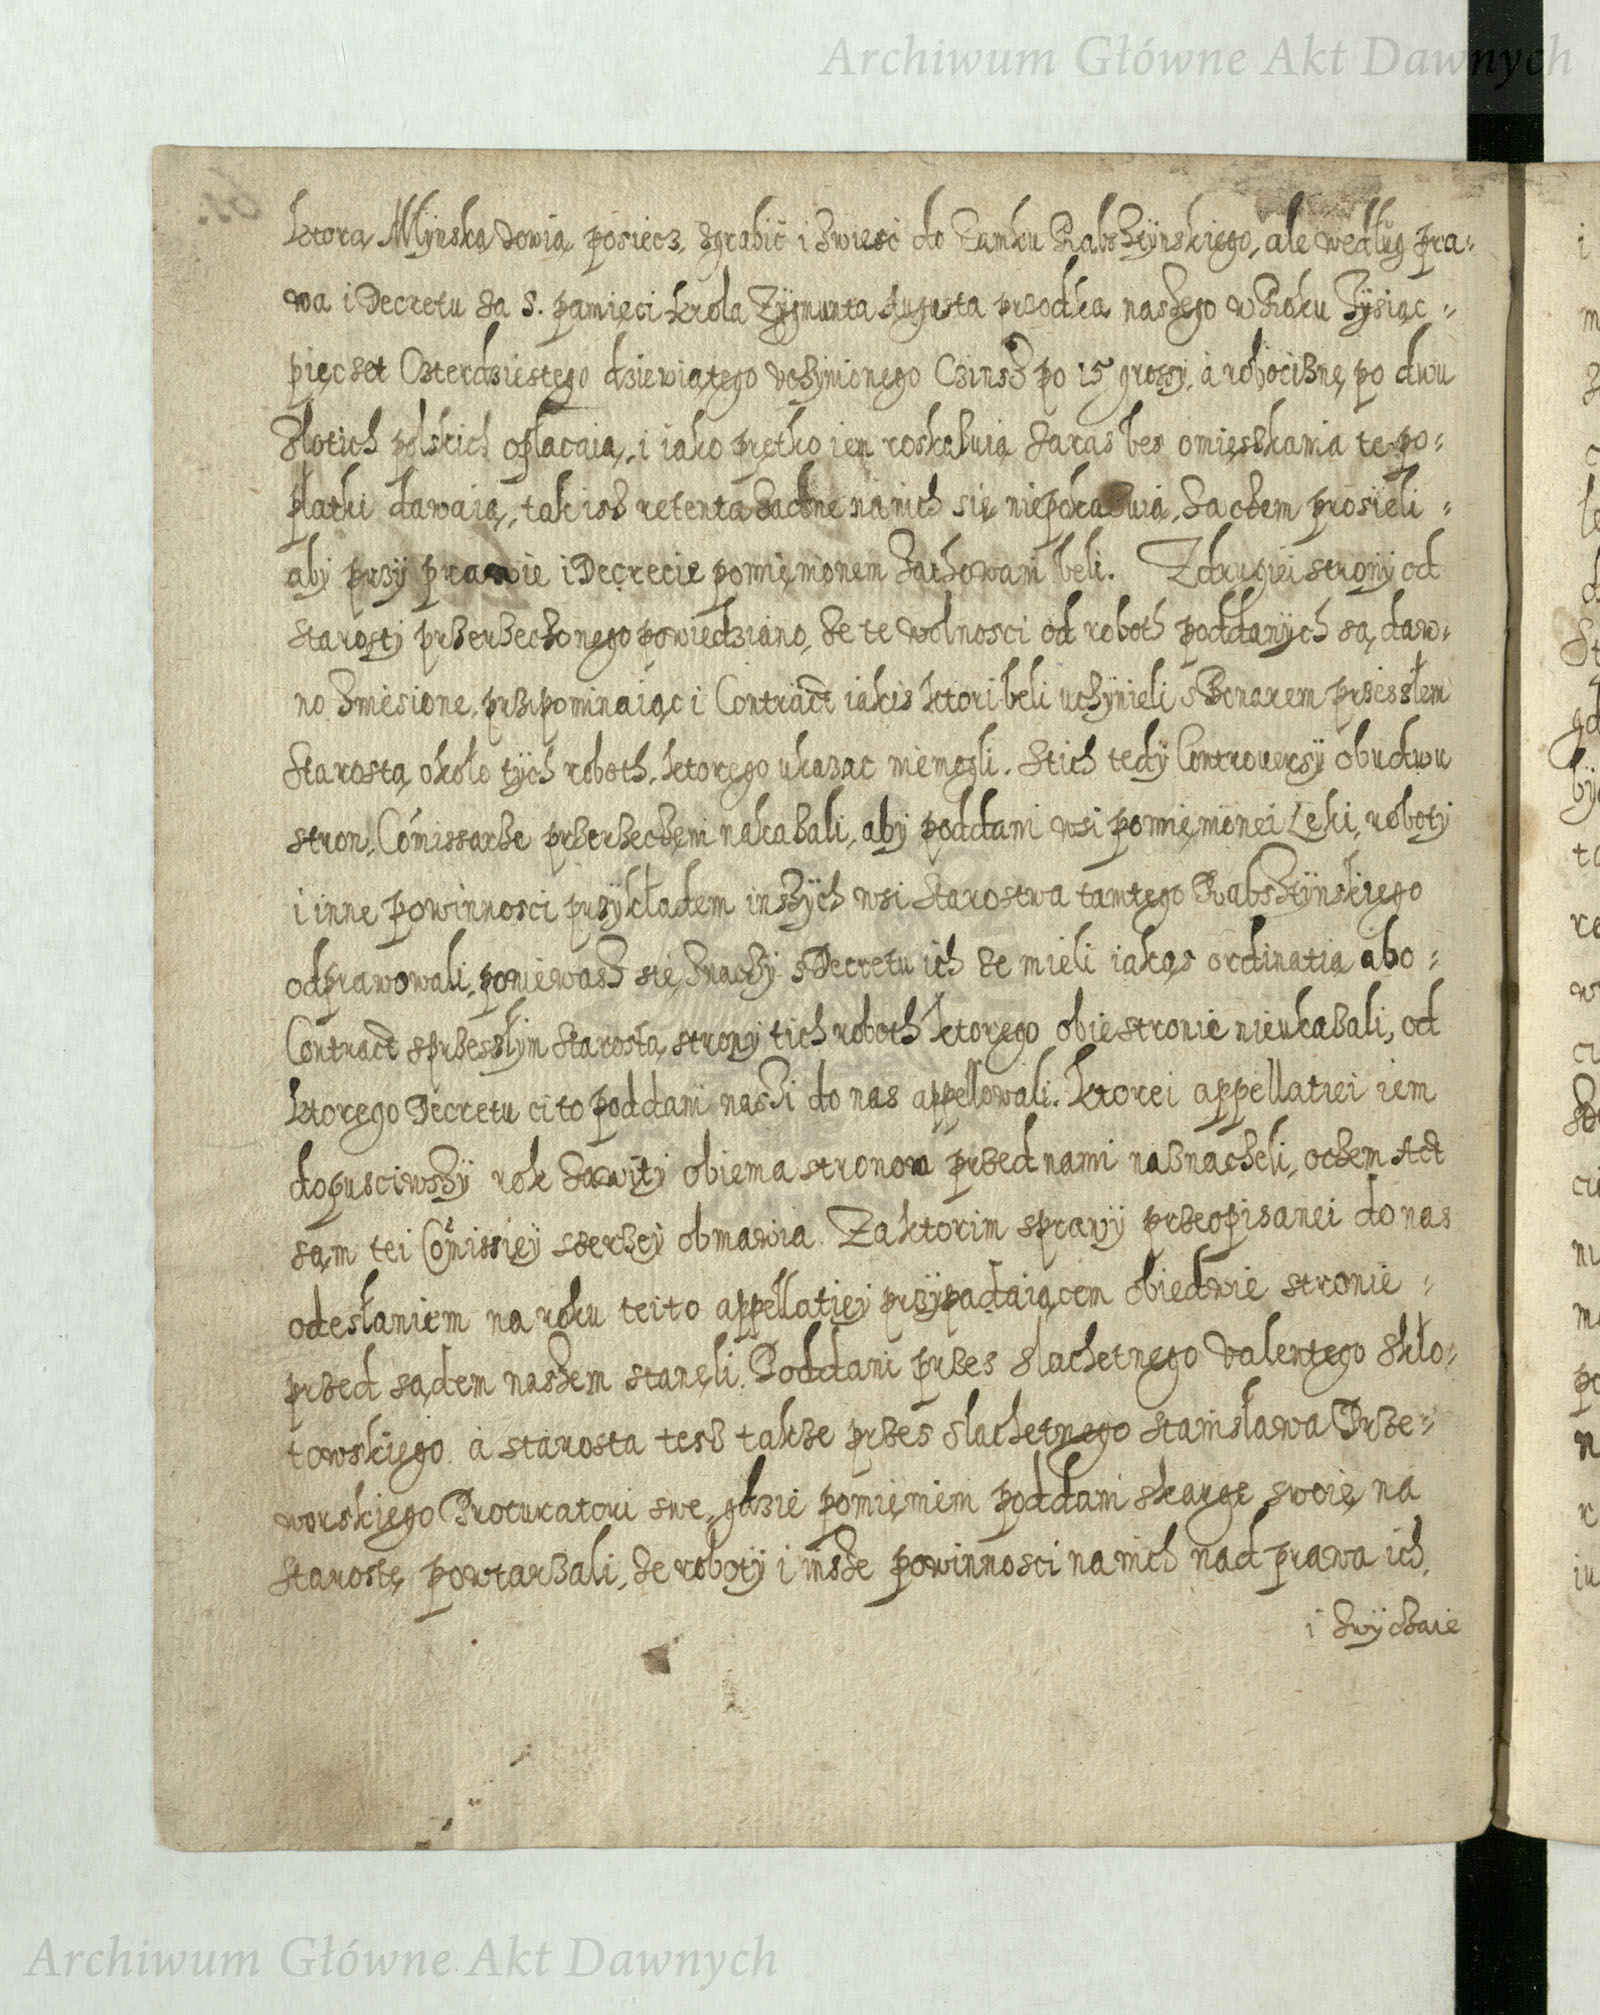 Archiwum Główne Akt Dawnych
ktorą Młynską zowią, posiecz, zgrabić i zwiesć do Zamku Rabsztÿnskiego, ale według pra=
wa i Decretu za S. pamięci krola Zÿgmunta Augusta przodka naszego w Roku Tÿsiąc =
pięcset Czterdziestego dziewiątego uczÿnionego Czinsz po 15 groszy, à robociznę po dwu
złotich polskich opłacaią, i iako prętko iem roskazuią zaras bes omięszkania te po=
płatki dawaią, tak isz retenta zadne na nich się niepokazuią, Zaczem prosieli =
aby przÿ prawie i Decrecie pomięnionem zachowani beli. Z drugiei strony od
Starosty przerzeczonego powiedziano, ze te wolnosci od roboth poddanÿch są daw=
no zniesione, przipominaiąc i Contract iakis ktori beli uczÿnieli s Bonarem przesłem
Starostą około tÿch roboth, ktorego ukazac niemogli. Stich tedÿ Controuersÿ obudwu
stron, Comissarze przerzeczęni nakazali, aby poddani wsi pomięnionei Łeki, roboty
i inne powinnosci przÿkładem inszÿch wsi Starostwa tamtego Rabsztÿnskiego
odprawowali, poniewasz się znaczÿ s Decretu ich ze mieli iakąs ordinatią abo =
Contract sprzesłÿm Starostą strony tich roboth ktorego obie stronie nieukazali, od
ktorego Decretu ci to poddani naszi do nas appellowali. Ktorei appellatiei iem
dopusciwszÿ rok zawitÿ obiema stronom przed nami naznaczeli, oczem Act
sąm tei Comissięÿ szerzeÿ obmawia. Zaktorim sprawÿ przeopisanei do nas
odesłaniem na roku tei to appellatięÿ przÿpadaiącem obiedwie stronie =
przed sądem naszem stanęli. Poddani przes slachetnego Valentego Skło=
towskiego à starosta tesz takze przes slachetnego Stanisława Prze=
worskiego Procuratori swe, gdzie pomięniem poddani skargę swoię na
Starostę powtarzali, ze robotÿ i insze powinnosci na nich nad prawa ich,
i zwÿczaie
Archiwum Główne Akt Dawnych